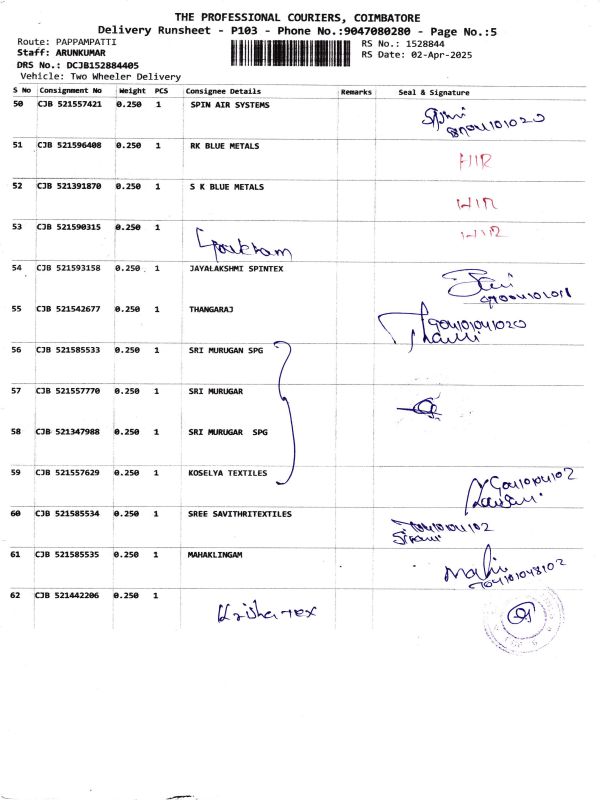 THE PROFESSIONAL COURIERS, COIMBATORE
Delivery Runsheet - P103 - Phone No.:9047080280 - Page No.:5
Route: PAPPAMPATTI
RS No.: 1528844
Staff: ARUNKUMAR
RS Date: 02-Apr-2025
DRS No.: DCJB152884405
Vehicle: Two Wheeler Delivery
S No Consignment No Weight PCS Consignee Details Remarks Seal & Signature
50 CJB 521557421 0.250 1 SPIN AIR SYSTEMS
51 CJB 521596408 0.250 1 RK BLUE METALS
52 CJB 521391870 0.250 1 S K BLUE METALS
53 CJB 521590315 0.250 1
54 CJB 521593158 0.250 1 JAYALAKSHMI SPINTEX
55 CJB 521542677 0.250 1 THANGARAJ
56 CJB 521585533 0.250 1 SRI MURUGAN SPG
57 CJB 521557770 0.250 1 SRI MURUGAR
58 CJB 521347988 0.250 1 SRI MURUGAR SPG
59 CJB 521557629 0.250 1 KOSELYA TEXTILES
60 CJB 521585534 0.250 1 SREE SAVITHRITEXTILES
61 CJB 521585535 0.250 1 MAHAKLINGAM
62 CJB 521442206 0.250 1